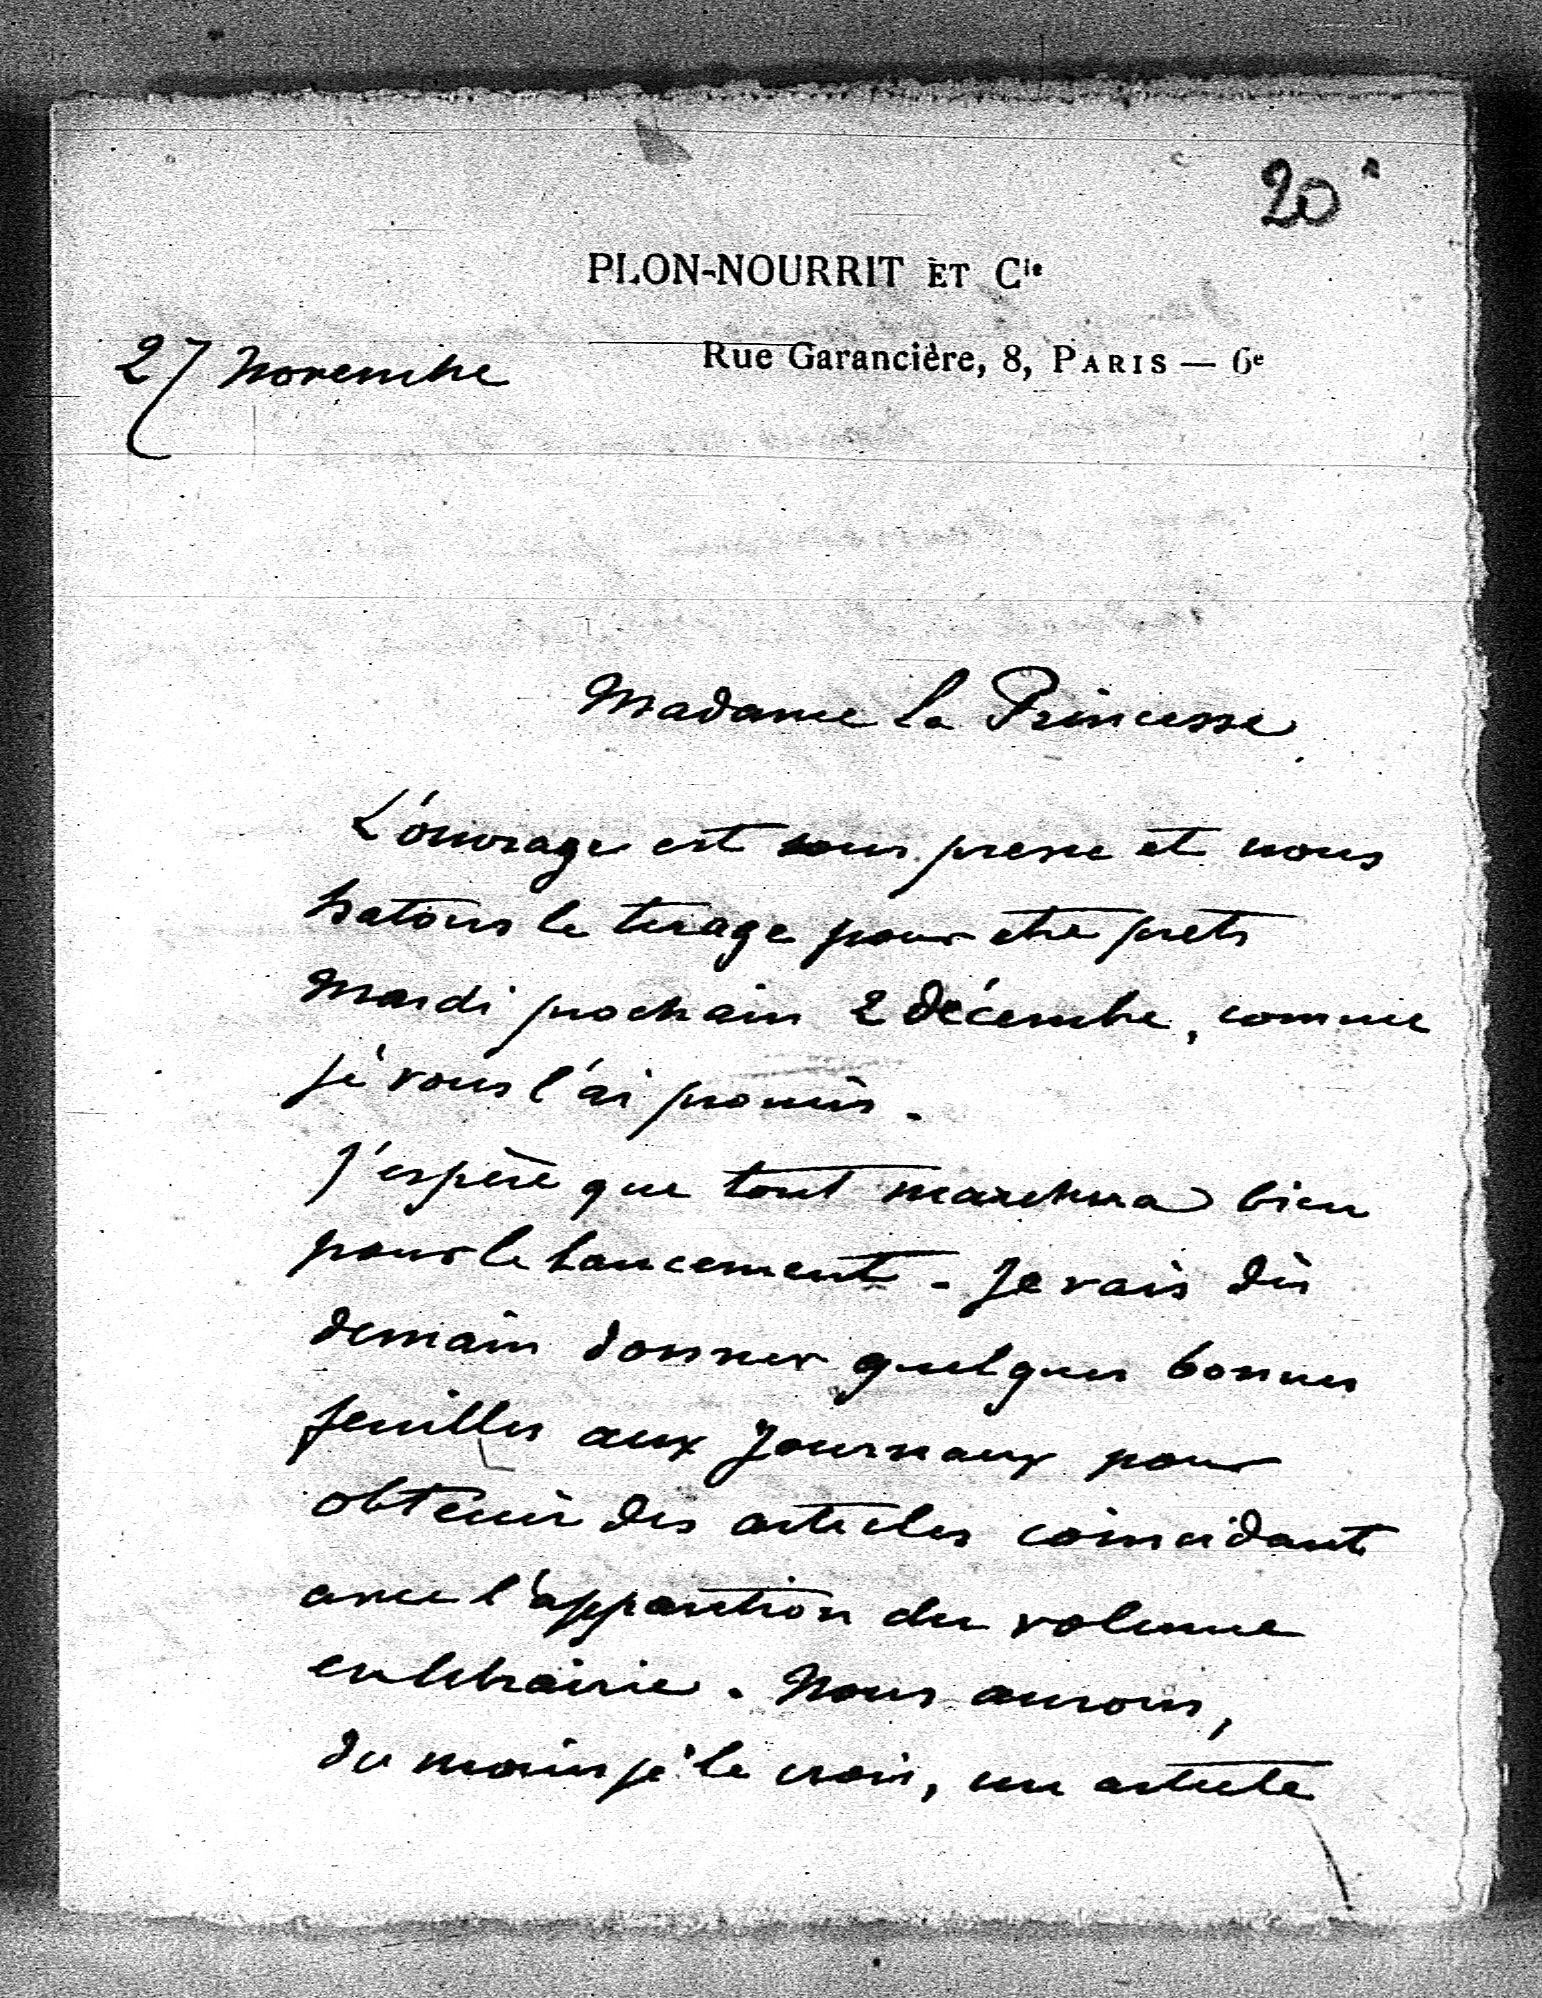 20
PLON-NOURRIT ET Cie
Rue Garancière, 8, PARIS — 6e
27 Novembre
Madame la Princesse
L'ouvrage est sous presse et nous
hatons le tirage pour etre prets
Mardi prochain 2 décembre, comme
je vous l'ai promis.
J'espère que tout marchera bien
pour le lancement. Je vais dès
demain donner quelques bonnes
feuilles aux Journaux pour
obtenir des articles coincidant
avec l'apparition du volume
en librairie. Nous aurons,
du moins je le crois, un article